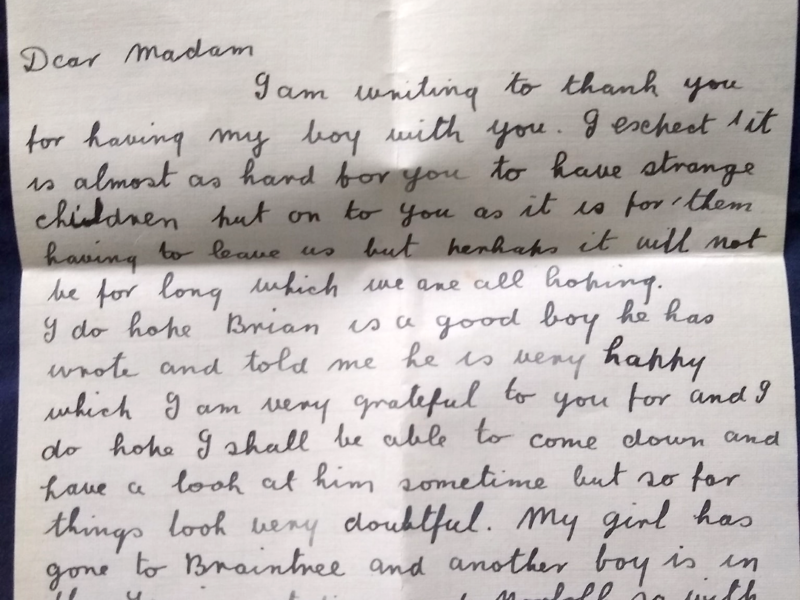 Dear Madam
I am writing to thank you
for having my boy with you. I exspect it
is almost as hard for you to have strange
children put on to you as it is for them
having to leave us but perhaps it will not
be for long which we are all hoping.
I do hope Brian is a good boy he has
wrote and told me he is very happy
which I am very grateful to you for and I
do hope I shall be able to come down and
have a look at him sometime but so far
things look very doubtful. My girl has
gone to Braintree and another boy is in
so with